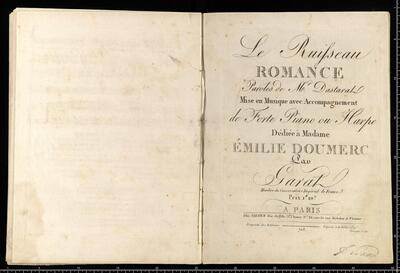 Le Ruisseau
ROMANCE
Paroles de Mr. Dastarat
Mise en Musique avec Accompagnement
de Forte Piano ou Harpe
Dédiée à Madame
ÉMILIE DOUMERC
Par
Garat
Membre du Conservatoire Impérial de France
Prix
A PARIS
Propriété des Editeurs